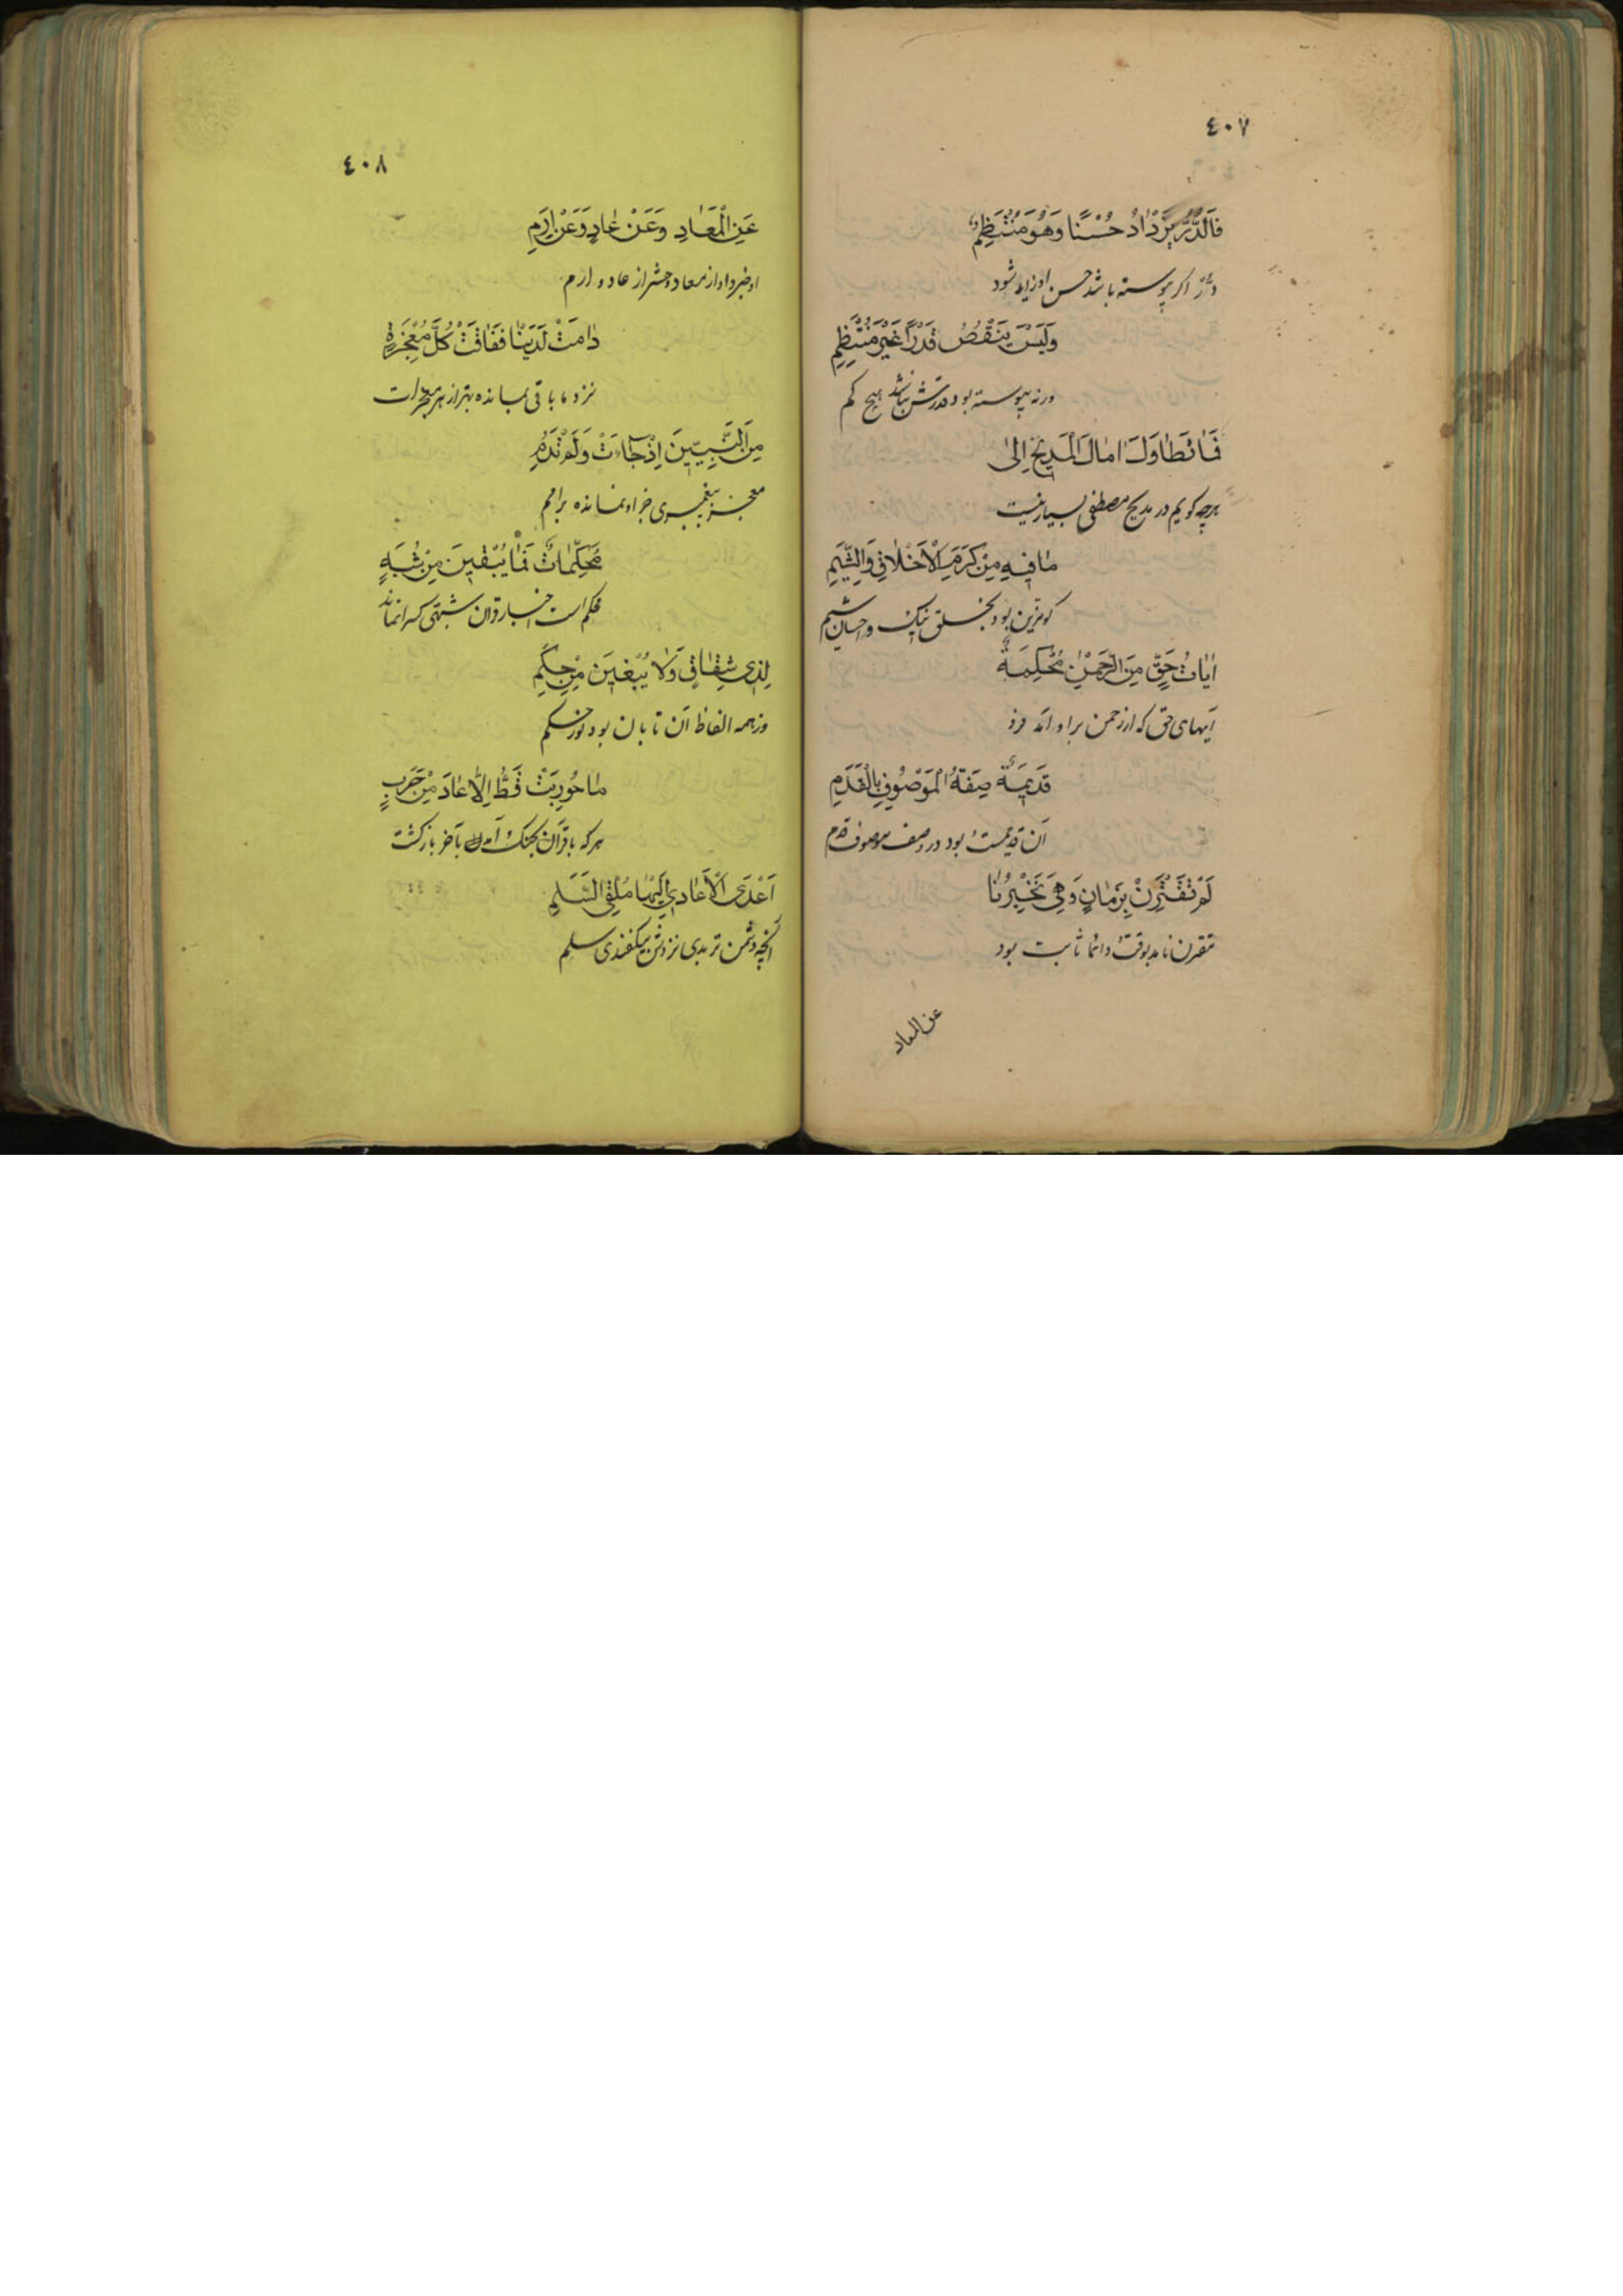 ٤٠٧
فَالدُّرُّ يَزْدَادُ حُسْنًا وَهُوَ مُنْتَظِمٌ
در اکر پیوسته باشد حسن او زاید شود
وَلَیْسَ یَنْقُصُ قَدْرًا غَیْرَ مُنْتَظِمِ
ورنه پیوسته بود قدرش نباشد هیچ کم
فَمَا تَطَاوَلَ اٰمَالُ الْمَدِیحِ اِلٰی
هرچه کویم در مدیح مصطفی بسیار نیست
مَا فِیهِ مِنْ کَرَمِ الْاَخْلَاقِ وَالشِّیَمِ
کو مزین بود بخلق نیک و احسان شیم
اٰیَاتُ حَقٍّ مِنَ الرَّحْمٰنِ مُحْکَمَةٌ
آیهای حق که از رحمن بر او آمد فرو
قَدِیمَةٌ صِفَةُ الْمَوْصُوفِ بِالْقِدَمِ
آن قدیمست بود در وصف موصوف قدم
لَمْ تَقْتَرِنْ بِزَمَانٍ وَهِیَ تُخْبِرُنَا
مقترن نامد بوقت دائما ثابت بود
عن المعاد
٤٠٨
عَنِ الْمَعَادِ وَعَنْ عَادٍ وَعَنْ اِرَمِ
او خبر داد از معاد و حشر از عاد و ارم
دَامَتْ لَدَیْنَا فَفَاقَتْ کُلَّ مُعْجِزَةٍ
نزد ما باقی بمانده بهتر از هر معجزات
مِنَ النَّبِیِّینَ اِذْ جَاءَتْ وَلَمْ تَدُمِ
معجز پیغمبری جز او نمانده بر امم
مُحَکَّمَاتٌ فَمَا یُبْقِینَ مِنْ شُبَهٍ
محکم است اخبار قران شبهتی کس را نماند
لِذِی شِقَاقٍ وَلَا یَبْغِینَ مِنْ حِکَمِ
وز همه الفاظ آن تابان بود نور حکم
مَا حُورِبَتْ قَطُّ اِلَّا عَادَ مِنْ حَرَبٍ
هرکه با قرآن بجنک آمد بآخر باز کشت
اَعْدَی الْاَعَادِی اِلَیْهَا مُلْقِیَ السَّلَمِ
آنچه دشمن تر بدی نزدش بیفکندی سلم